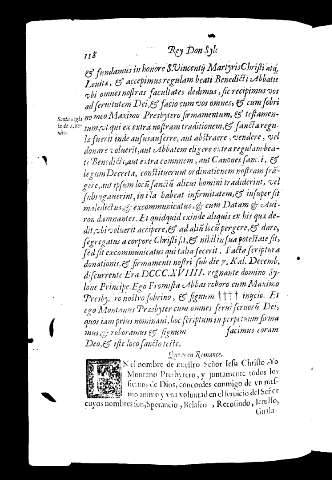 118 Rey Don Sylo
& fundamus in honore S. Vincentij Martyris Christi atq;
Leuitæ, & accepimus regulam beati Benedicti Abbatis
vbi omnes nostras facultates dedimus, sic recipimus vos
ad seruitutem Dei, & facio cum vos omnes, & cum sobri
no meo Maximo Presbytero firmamentum, & testamen-
tum, vt qui ex extra nostram traditionem, & sancta regu
la fuerit inde ausus auferre, aut abstraere, vendere, vel
donare voluerit, aut Abbatem eligere extra regulam bea-
ti Benedicti, aut extra comunem, aut Canones sancti, &
legum Decreta, constituerunt ordinationem nostram frā-
gere, aut ipsum locũ sanctũ alicui homini tradiderint, vel
subiugauerint, in ira habeat infirmitatem, & insuper sit
maledictus, & excommunicatus, & cum Datam & Aui-
ron damnantes. Et quidquid exinde aliquis ex his que de-
dit, vbi voluerit accipere, & ad aliũ locũ pergere, & dare,
segregatus a corpore Christi sit, & nihil in sua potestate sit,
sed sit excommunicatus qui talia fecerit. Facta scriptura
donationis, & firmamenti nostri sub die 7. Kal. Decemb.
discurrente Era DCCC.XVIIII. regnante domino Sy-
lone Principe. Ego Fromista Abbas roboro cum Maximo
Presby. ro nostro sobrino, & signum †††† inijcio. Et
ego Montanus Presbyter cum omnes serui seruorũ Dei,
quos iam prius nominaui, hoc scriptum in perpetuum firma
mus, & roboramus & signum facimus coram
Deo, & iste loco sancto teste.
Quiere en Romance.
EN el nombre de nuestro Señor Iesu Christo. Yo
Montano Presbytero, y juntamente todos los
sieruos de Dios, concordes conmigo de vn mis-
mo animo y vna voluntad en el seruicio del Señor
cuyos nombres son, Sperancio, Belasco, Recosindo,